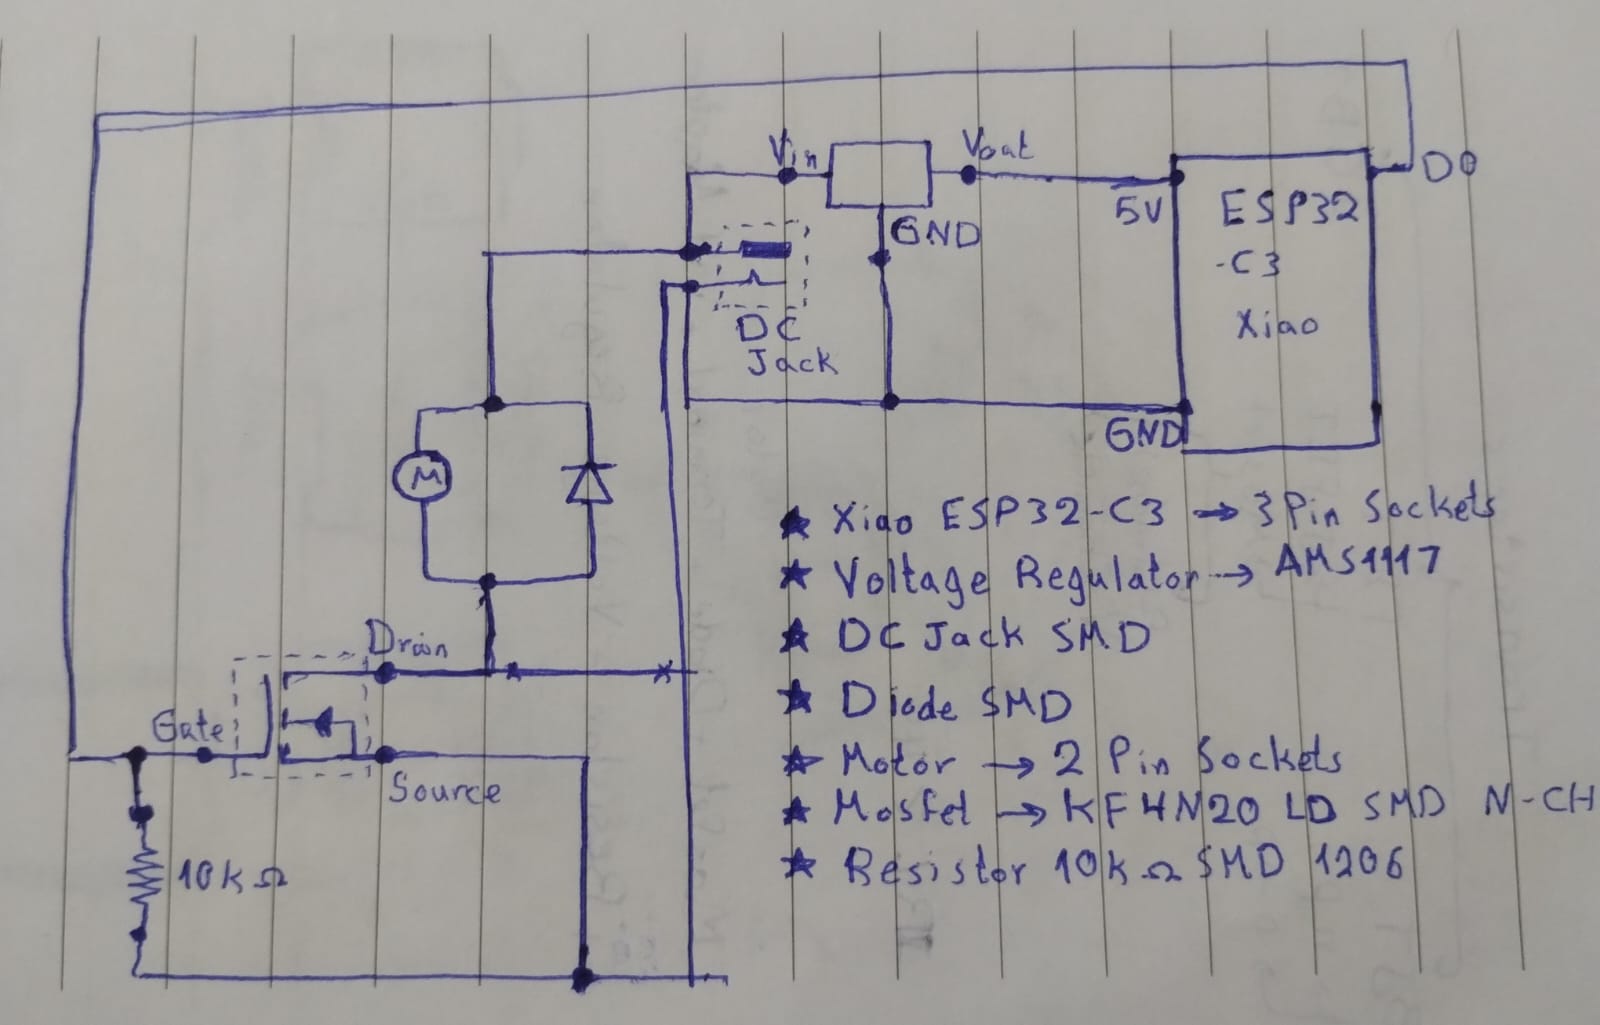 D0
Vin
Vout
GND
5V
ESP32
-C3
Xiao
DC
Jack
GND
M
★ Xiao ESP32-C3 → 3 Pin Sockets
★ Voltage Regulator → AMS1117
★ DC Jack SMD
Drain
★ Diode SMD
Gate
★ Motor → 2 Pin Sockets
Source
★ Mosfet → KF4N20 LD SMD N-CH
★ Resistor 10kΩ SMD 1206
10kΩ